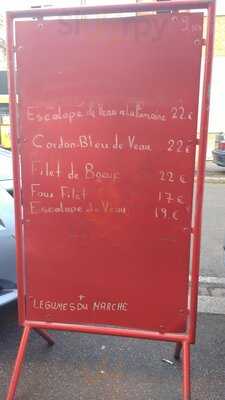 Escalope de Veau a la Parisienne 22€
Cordon-Bleu de Veau 22€
Filet de Boeuf 22€
Faux Filet 17€
Escalope de Veau 19€
+
LEGUMES DU MARCHE